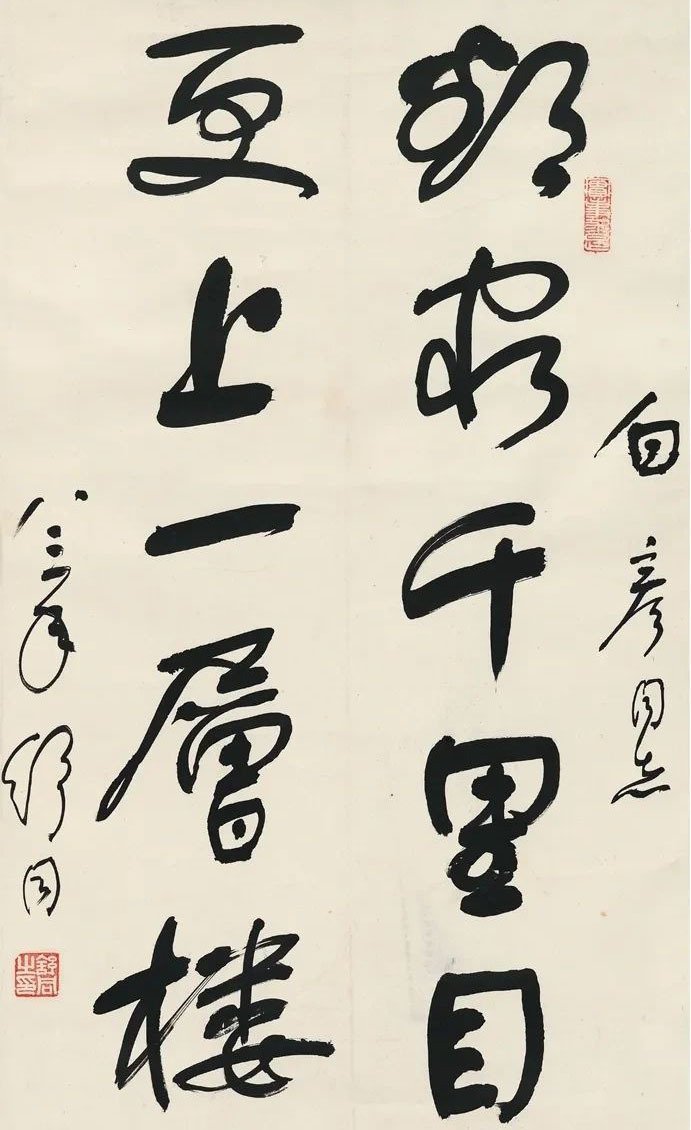 白彦同志
欲穷千里目
更上一层楼
八三年舒同
舒同之印